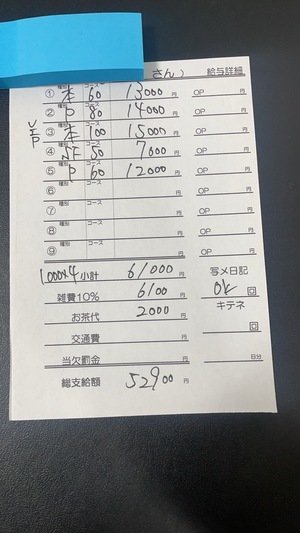 さん） 給与詳細
① 種別 本 コース 60 13000 円 OP 円
② 種別 P コース 80 14000 円 OP 円
VIP
③ 種別 本 コース 100 15000 円 OP 円
④ 種別 コース 50 7000 円 OP 円
⑤ 種別 P コース 60 12000 円 OP 円
⑥ 種別 コース 円 OP 円
⑦ 種別 コース 円 OP 円
⑧ 種別 コース 円 OP 円
⑨ 種別 コース 円 OP 円
1,000×4 小計 61000 円 写メ日記
雑費10% 6100 円 OK 回
お茶代 2000 円 キテネ
交通費 円 回
当欠罰金 円 日分
総支給額 52900 円